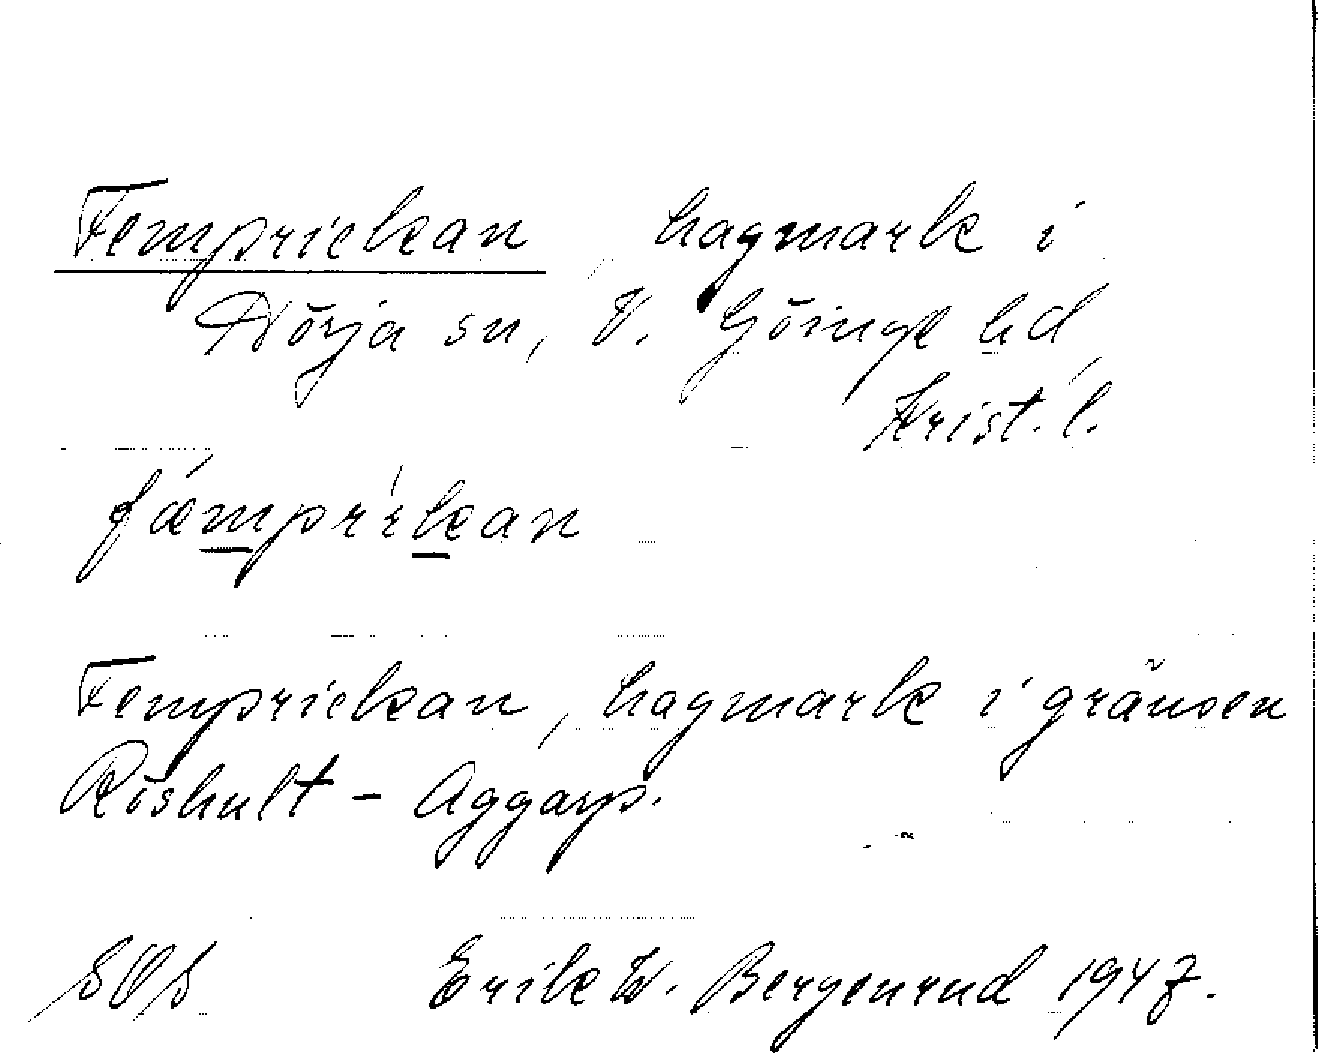 Femprickan, hagmark i
Nörja sn, V. Göinge hd,
Krist. l.
fæmprikan
Femprickan, hagmark i gränsen
Röshult - Aggarp.
SOS Erik W. Bergenrud 1947.